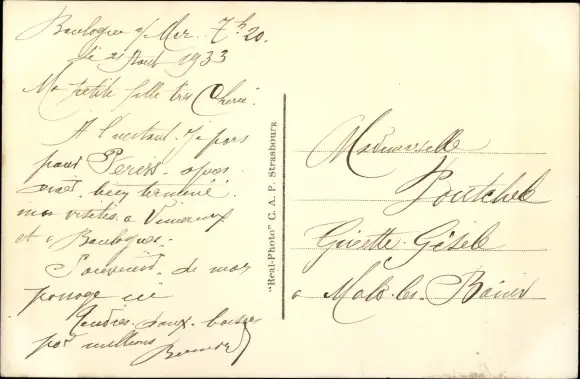 Boulogne s/Mer. 7h 20.
le 21 Août 1933
Ma petite fille très Chérie.
A l'instant. Je pars
pour après
avoir bien terminé
mes visites. a Wimereux
et a Boulogne.-
Souvenirs. de mon
passage ici
Tendres. doux. baisers
par millions
"Real-Photo" C. A. P. Strasbourg
Mademoiselle
Poutchel
Ginette. Gisèle
a Malo-les-Bains